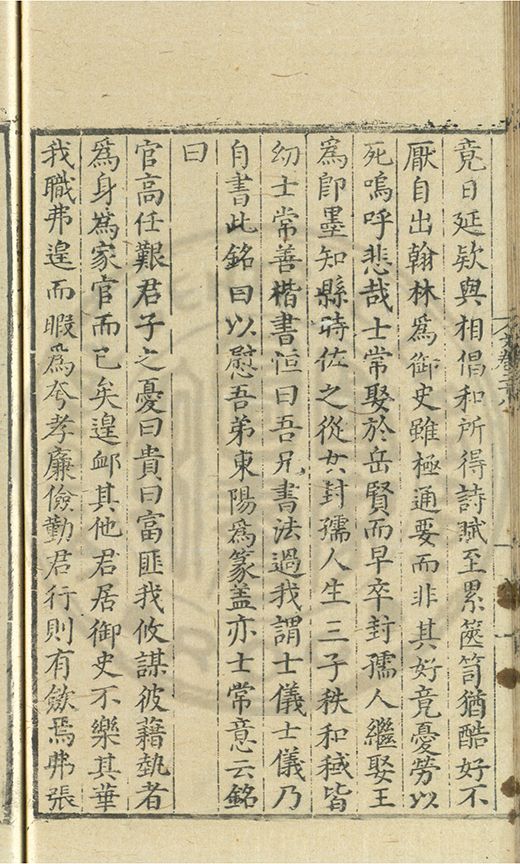 竟日延欵與相倡和所得詩賦至累篋笥猶酷好不
厭自出翰林爲御史雖極通要而非其好竟憂勞以
死嗚呼悲哉士常娶於岳賢而早卒封孺人繼娶王
爲卽墨知縣時佐之從女封孺人生三子秩和秫皆
幼士常善楷書恒曰吾兄書法過我謂士儀士儀乃
自書此銘曰以慰吾弟東陽爲篆盖亦士常意云銘
曰
官高任艱君子之憂曰貴曰富匪我攸謀彼藉埶者
爲身爲家官而已矣遑衈其他君居御史不樂其華
我職弗遑而暇爲夸孝廉儉勤君行則有歛焉弗張